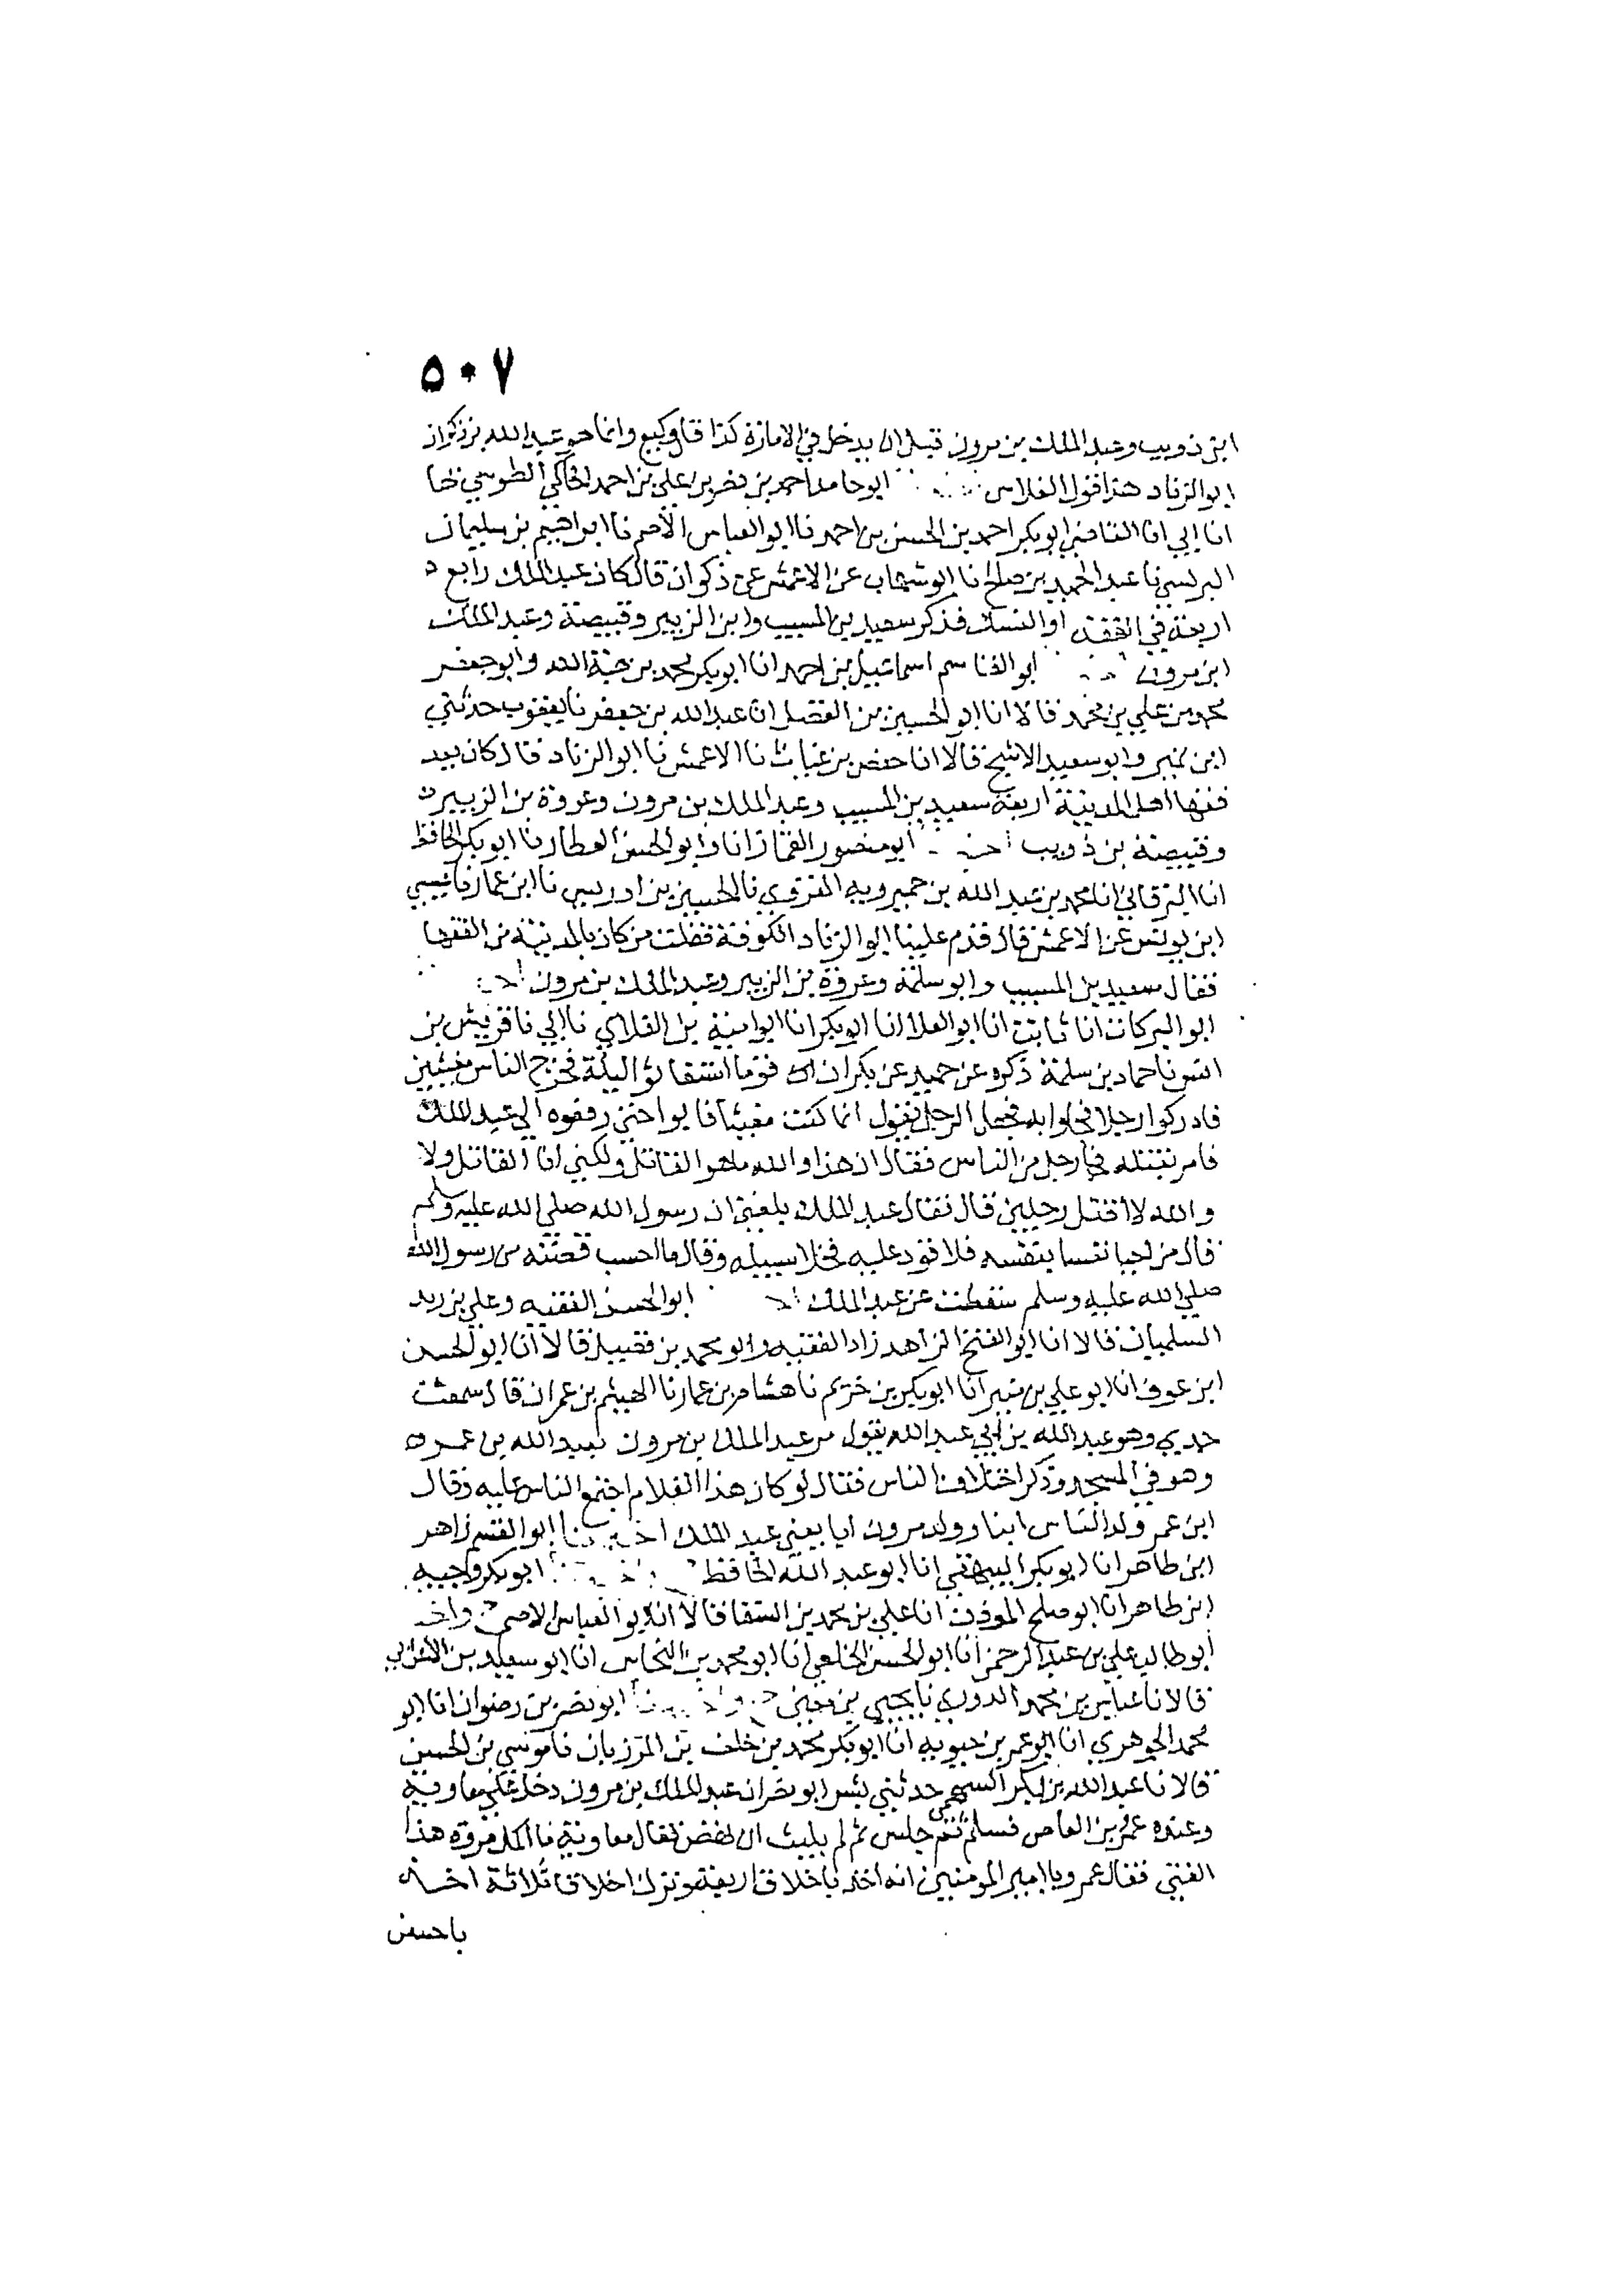 ٥٠٧
ابن ذويب وعبد الملك بن مرون قبل ان يدخل في الامارة كذا قال وكيع وانما هو عبد الله بن ذكوان
ابو الزناد هذا قول الفلاس ابو حامد احمد بن نصر بن علي بن احمد الحاكمي الطوسي بها
انا ابي انا القاضي ابو بكر احمد بن الحسن بن احمد نا ابو العباس الاصم نا ابراهيم بن سليمان
البرلسي نا عبد الحميد بن صلح نا ابو شهاب عن الاعمش عن ذكوان قال كان عبد الملك رابع
اربعة في الفقه او النسك فذكر سعيد بن المسيب وابن الزبير وقبيصة وعبد الملك
ابن مرون ابو القاسم اسماعيل بن احمد انا ابو بكر محمد بن هبة الله وابو جعفر
محمد بن علي بن محمد قالا انا ابو الحسين بن الفضل انا عبد الله بن جعفر نا يعقوب حدثني
ابن نمير وابو سعيد الاشج قالا انا حفص بن غياث نا الاعمش نا ابو الزناد قال كان يعد
فقها اهل المدينة اربعة سعيد بن المسيب وعبد الملك بن مرون وعروة بن الزبير
وقبيصة بن ذويب ابو منصور القزاز انا وابو الحسن العطار نا ابو بكر الحافظ
انا البرقاني انا محمد بن عبد الله بن خميرويه الهروي نا الحسين بن ادريس نا ابن عمار نا عيسى
ابن يونس عن الاعمش قال قدم علينا ابو الزناد الكوفة فقلت من كان بالمدينة من الفقها
فقال سعيد بن المسيب وابو سلمة وعروة بن الزبير وعبد الملك بن مرون
ابو البركات انا ثابت انا ابو العلا انا ابو بكر انا ابو امية بن الغلابي نا ابي نا قريش بن
انس نا حماد بن سلمة ذكره عن حميد عن بكر ان قوما استقاتلوا ليلة فخرج الناس مغيثين
فادركوا رجلا فجاوا به فجعل الرجل يقول انما كنت مغيثا فابوا حتى رفعوه الى عبد الملك
فامر بقتله فجا رجل من الناس فقال ان هذا والله ما هو القاتل ولكني انا القاتل ولا
والله لا اقتل رجلين قال فقال عبد الملك بلغني ان رسول الله صلى الله عليه وسلم
قال من احيا نفسا بنفسه فلا قود عليه فخلا سبيله وقال ما احسب من رسول الله
صلى الله عليه وسلم سقطت عن عبد الملك ابو الحسن الفقيه وعلي بن زيد
السلميان قالا انا ابو الفتح الزاهد زاد الفقيه وابو محمد بن فضيل قالا انا ابو الحسن
ابن عوف انا ابو علي بن منير انا ابو بكر بن خريم نا هشام بن عمار نا الهيثم بن عمران قال سمعت
جدي وهو عبد الله بن ابي عبد الله يقول مر عبد الملك بن مرون بعبد الله بن عمر
وهو في المسجد وذكر اختلاف الناس فقال لو كان هذا الغلام اجتمع الناس عليه وقال
ابن عمر ولد الناس ابنا وولد مرون ابا يعني عبد الملك اخبرنا ابو القسم زاهر
ابن طاهر انا ابو بكر البيهقي انا ابو عبد الله الحافظ ابو بكر وجيه
ابن طاهر انا ابو صلح الموذن انا علي بن محمد بن السقا قالا انا ابو العباس الاصم
ابو طالب علي بن عبد الرحمن انا ابو الحسن الخلعي انا ابو محمد بن النحاس انا ابو سعيد بن الاعرابي
قالا نا عباس بن محمد الدوري نا يحيى بن معين ابو نصر بن رضوان انا ابو
محمد الجوهري انا ابو عمر بن حيويه انا ابو بكر محمد بن خلف بن المرزبان نا موسى بن الحسين
قالا نا عبد الله بن بكر السهمي حدثني بشر ابو نصر ان عبد الملك بن مرون دخل على معاوية
وعنده عمرو بن العاص فسلم ثم جلس ثم لم يلبث ان نهض فقال معاوية ما اكمل مروة هذا
الفتى فقال عمرو يا امير المومنين انه اخذ باخلاق اربعة وترك اخلاقا ثلاثة اخذ
باحسن